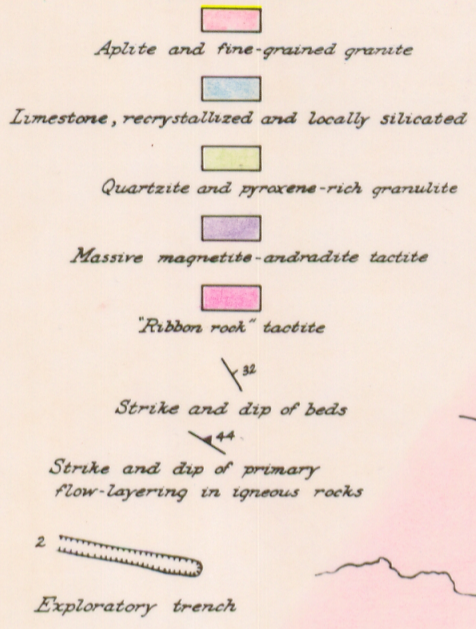 Aplite and fine-grained granite
Limestone, recrystallized and locally silicated
Quartzite and pyroxene-rich granulite
Massive magnetite-andradite tactite
"Ribbon rock" tactite
32
Strike and dip of beds
44
Strike and dip of primary
flow-layering in igneous rocks
2
Exploratory trench